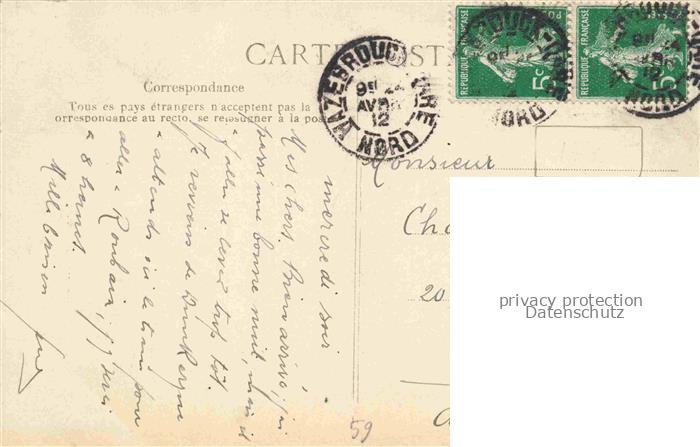 CARTE POST
RÉPUBLIQUE FRANÇAISE
POSTES
5c
RÉPUBLIQUE FRANÇAISE
5c
HAZEBROUCK-GARE
9H
AVRIL
12
NORD
Correspondance
Tous ces pays étrangers n'acceptent pas la
correspondance au recto, se renseigner à la poste
Monsieur
Ch
20
mercredi soir
Mes chers, Bien arrivé, j'ai
passé une bonne nuit, mais il
a fallu se lever trop tôt.
Je reviens de Dunkerque
attends ici le train pour
aller à Roubaix, j'y serai
à 8 heures.
Mille baisers
59
privacy protection
Datenschutz